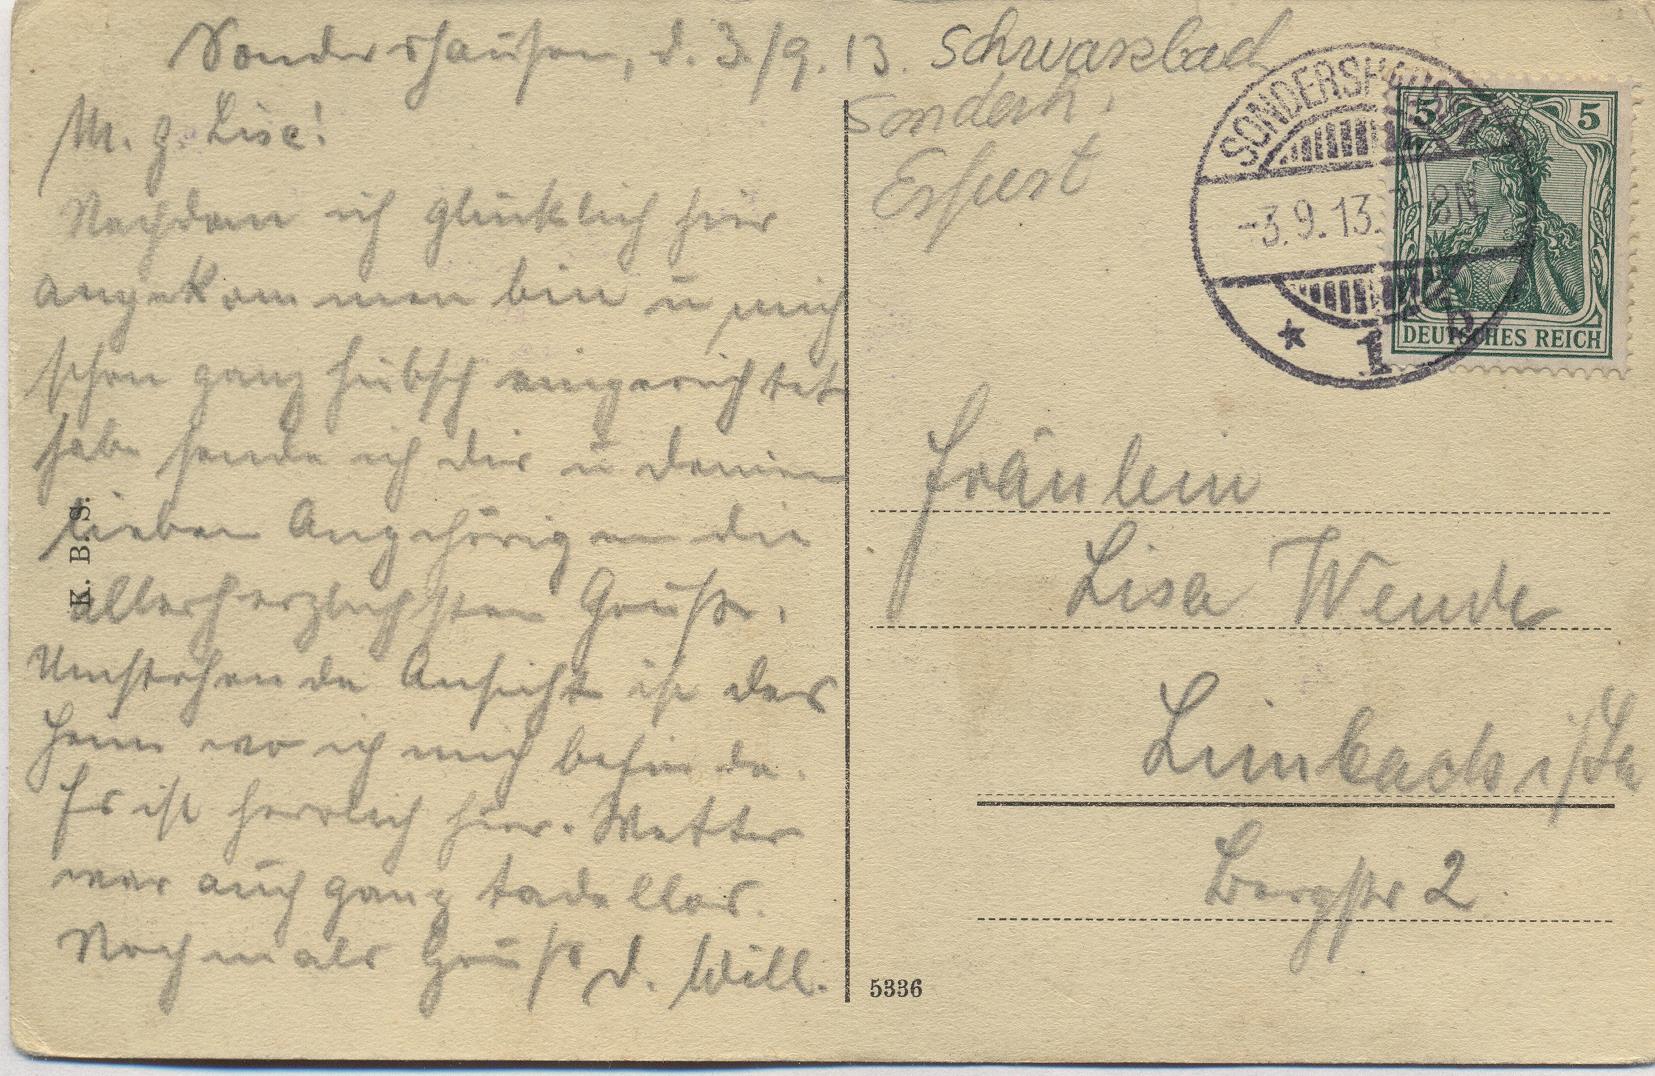 Sondershausen, d. 3./9. 13.
M. g. Lise!
Nachdem ich glücklich hier
angekommen bin u mich
schon ganz hübsch eingerichtet
habe sende ich dir u deinen
lieben Angehörigen die
allerherzlichsten Grüße.
Umstehende Ansicht ist das
Heim wo ich mich befinde.
Es ist herrlich hier. Wetter
war auch ganz tadellos.
Nochmals Gruß d. Will.
K. B. S.
Schwarzbad
Sondersh.
Erfurt
SONDERSHAUSEN
-3.9.13. 7-8N
* 1 b
5 5
DEUTSCHES REICH
Fräulein
Lisa Wende
Limbach i/Sa
Bergstr 2
5336